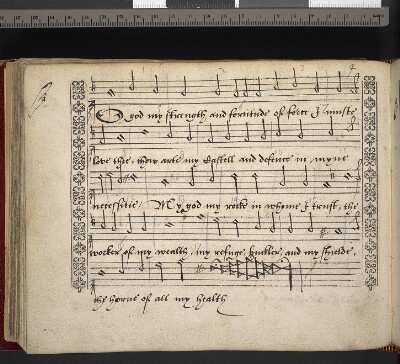 O god my strength and fortitude of force I muste
love thee, thow arte my Castell and defence in myne
necessitie / My god my rocke in whome I trust, the
worker of my wealth, my refuge, buckler, and my shielde,
the horne of all my health